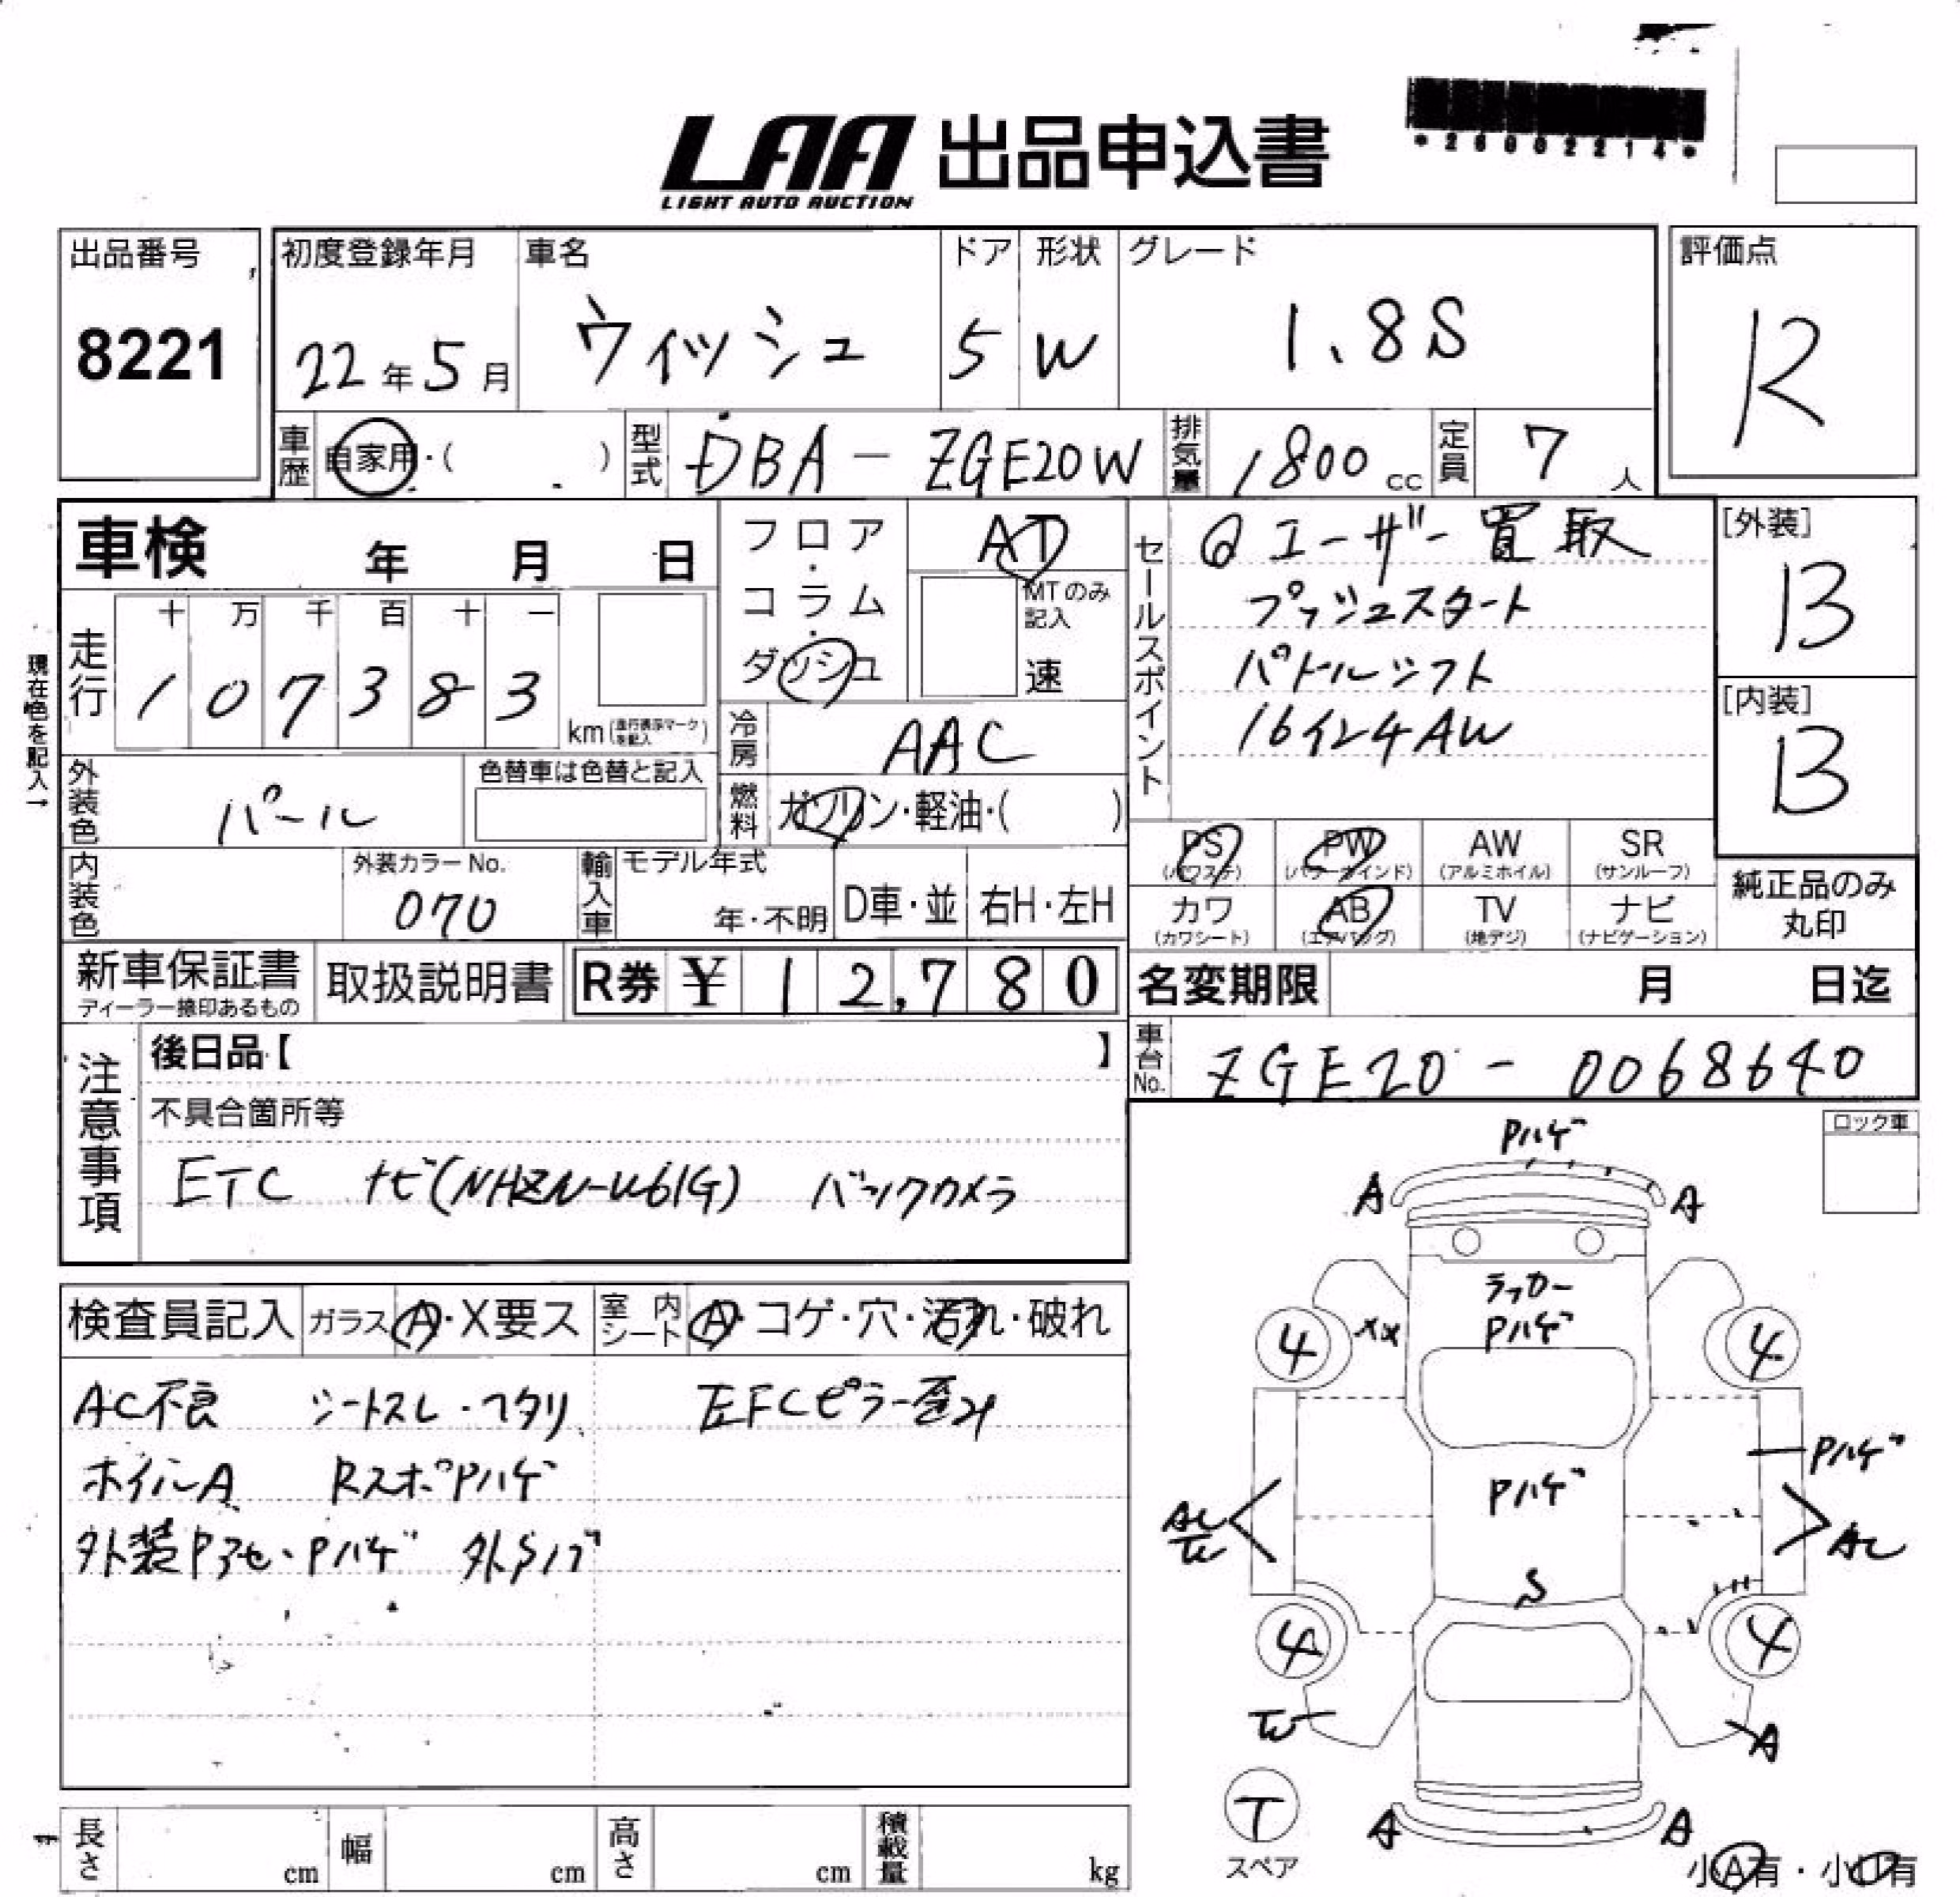 LAA 出品申込書
LIGHT AUTO AUCTION
*26002214*
出品番号 初度登録年月 車名 ドア 形状 グレード 評価点
8221 22年5月 ウィッシュ 5 W 1.8S R
車歴 自家用・( ) 型式 DBA-ZGE20W 排気量 1800cc 定員 7人
車検 年 月 日
フロア・コラム・ダッシュ
AT
MTのみ記入
速
セールスポイント
@ユーザー買取
プッシュスタート
パドルシフト
16インチAW
[外装]
B
[内装]
B
現在色を記入→
走行 十万千百十一
107383
km(走行表示マークを記入)
冷房 AAC
外装色 パール 色替車は色替と記入
燃料 ガソリン・軽油・( )
PS AW SR
PW
(パワステ) (パワーウインド) (アルミホイル) (サンルーフ)
カワ AB TV ナビ
(カワシート) (エアバッグ) (地デジ) (ナビゲーション)
純正品のみ
丸印
内装色 外装カラーNo. 070
輸入車 モデル年式 年・不明 D車・並 右H・左H
新車保証書 取扱説明書 R券 ¥12,780
ディーラー捺印あるもの
名変期限 月 日迄
車台No. ZGE20-0068640
注意事項
後日品【 】
不具合箇所等
ETC ナビ(NHZN-W61G) バックカメラ
ロック車
検査員記入 ガラス A・X要ス 室内シート A・コゲ・穴・汚れ・破れ
AC不良 シートスレ・ヘタリ 左FCピラー歪み
ホイルA RスポPハゲ
外装Pアセ、Pハゲ
Pハゲ
A A
ラッカー
Pハゲ
4 XX 4
Pハゲ
Pハゲ
AU AU
S
4 4
A
T
スペア
A A
小A有・小U有
長さ cm 幅 cm 高さ cm 積載量 kg